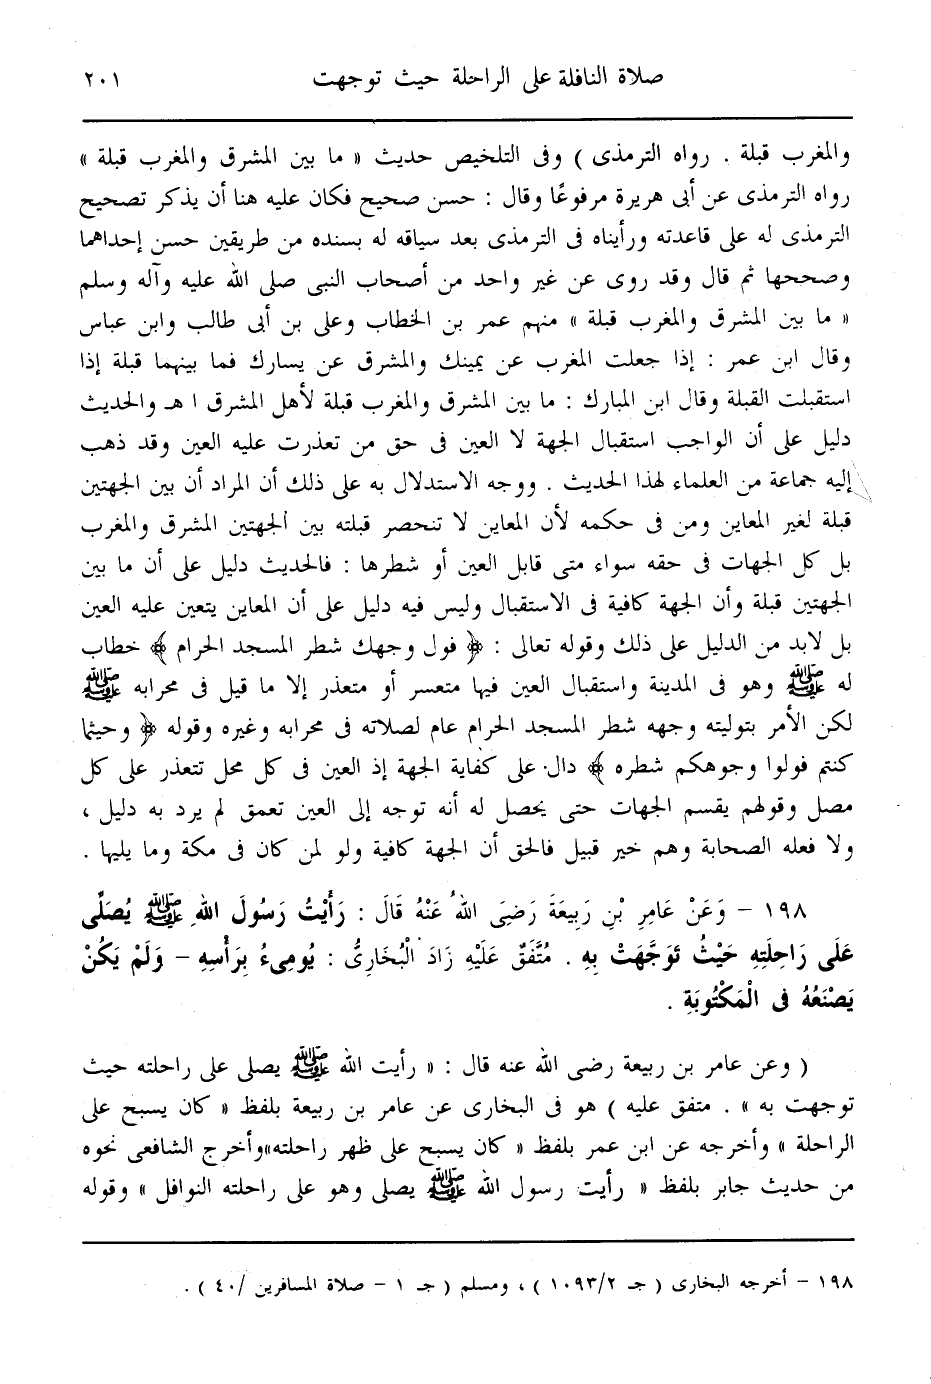 صلاة النافلة على الراحلة حيث توجهت ٢٠١
والمغرب قبلة . رواه الترمذى ) وفى التلخيص حديث « ما بين المشرق والمغرب قبلة »
رواه الترمذى عن أبى هريرة مرفوعًا وقال : حسن صحيح فكان عليه هنا أن يذكر تصحيح
الترمذى له على قاعدته ورأيناه فى الترمذى بعد سياقه له بسنده من طريقين حسن إحداهما
وصححها ثم قال وقد روى عن غير واحد من أصحاب النبى صلى الله عليه وآله وسلم
« ما بين المشرق والمغرب قبلة » منهم عمر بن الخطاب وعلى بن أبى طالب وابن عباس
وقال ابن عمر : إذا جعلت المغرب عن يمينك والمشرق عن يسارك فما بينهما قبلة إذا
استقبلت القبلة وقال ابن المبارك : ما بين المشرق والمغرب قبلة لأهل المشرق ا هـ والحديث
دليل على أن الواجب استقبال الجهة لا العين فى حق من تعذرت عليه العين وقد ذهب
إليه جماعة من العلماء لهذا الحديث . ووجه الاستدلال به على ذلك أن المراد أن بين الجهتين
قبلة لغير المعاين ومن فى حكمه لأن المعاين لا تنحصر قبلته بين الجهتين المشرق والمغرب
بل كل الجهات فى حقه سواء متى قابل العين أو شطرها : فالحديث دليل على أن ما بين
الجهتين قبلة وأن الجهة كافية فى الاستقبال وليس فيه دليل على أن المعاين يتعين عليه العين
بل لابد من الدليل على ذلك وقوله تعالى : ﴿ فول وجهك شطر المسجد الحرام ﴾ خطاب
له ﷺ وهو فى المدينة واستقبال العين فيها متعسر أو متعذر إلا ما قيل فى محرابه ﷺ
لكن الأمر بتوليته وجهه شطر المسجد الحرام عام لصلاته فى محرابه وغيره وقوله ﴿ وحيثما
كنتم فولوا وجوهكم شطره ﴾ دال على كفاية الجهة إذ العين فى كل محل تتعذر على كل
مصل وقولهم يقسم الجهات حتى يحصل له أنه توجه إلى العين تعمق لم يرد به دليل ،
ولا فعله الصحابة وهم خير قبيل فالحق أن الجهة كافية ولو لمن كان فى مكة وما يليها .
١٩٨ – وَعَنْ عَامِرِ بْنِ رَبِيعَةَ رَضِىَ اللهُ عَنْهُ قَالَ : رَأَيْتُ رَسُولَ اللهِ ﷺ يُصَلِّى
عَلَى رَاحِلَتِهِ حَيْثُ تَوَجَّهَتْ بِهِ . مُتَّفَقٌ عَلَيْهِ زَادَ الْبُخَارِىُّ : يُومِىءُ بِرَأْسِهِ – وَلَمْ يَكُنْ
يَصْنَعُهُ فى الْمَكْتُوبَةِ .
( وعن عامر بن ربيعة رضى الله عنه قال : « رأيت الله ﷺ يصلى على راحلته حيث
توجهت به » . متفق عليه ) هو فى البخارى عن عامر بن ربيعة بلفظ « كان يسبح على
الراحلة » وأخرجه عن ابن عمر بلفظ « كان يسبح على ظهر راحلته»وأخرج الشافعى نحوه
من حديث جابر بلفظ « رأيت رسول الله ﷺ يصلى وهو على راحلته النوافل » وقوله
١٩٨ – أخرجه البخارى ( جـ ١٠٩٣/٢ ) ، ومسلم ( جـ ١ – صلاة المسافرين /٤٠ ) .